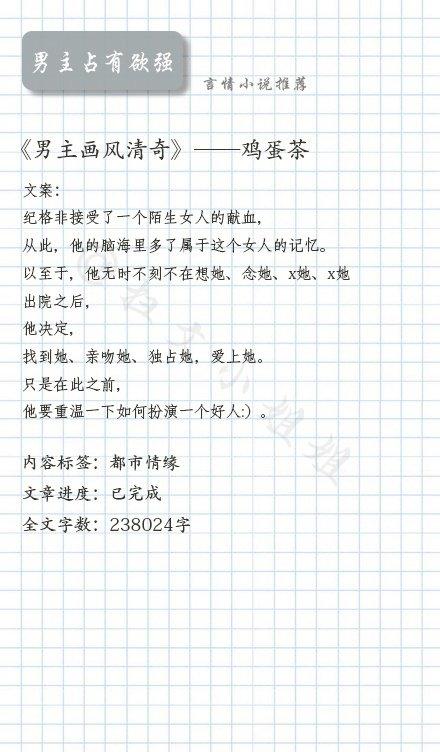 男主占有欲强
言情小说推荐
《男主画风清奇》——鸡蛋茶
文案：
纪格非接受了一个陌生女人的献血，
从此，他的脑海里多了属于这个女人的记忆。
以至于，他无时不刻不在想她、念她、x她、x她
出院之后，
他决定，
找到她、亲吻她、独占她，爱上她。
只是在此之前，
他要重温一下如何扮演一个好人:）。
内容标签：都市情缘
文章进度：已完成
全文字数：238024字
小姐姐